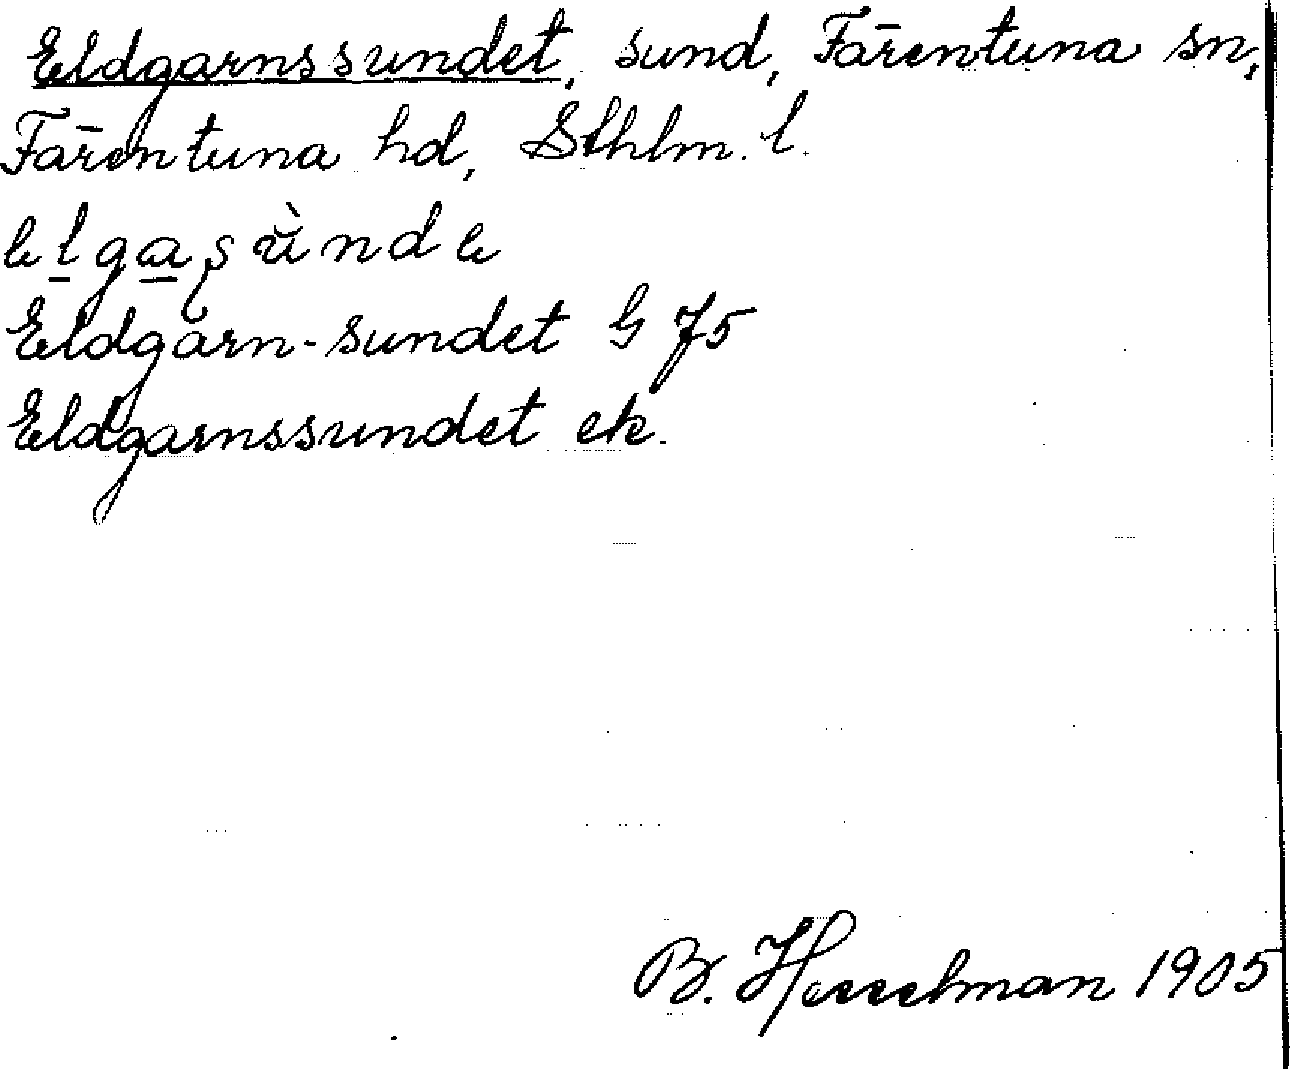 Eldgarnssundet, sund, Färentuna sn,
Färentuna hd, Sthlm. l.
Eldgarn-sundet G 75
Eldgarnssundet ek.
B. Hesselman 1905